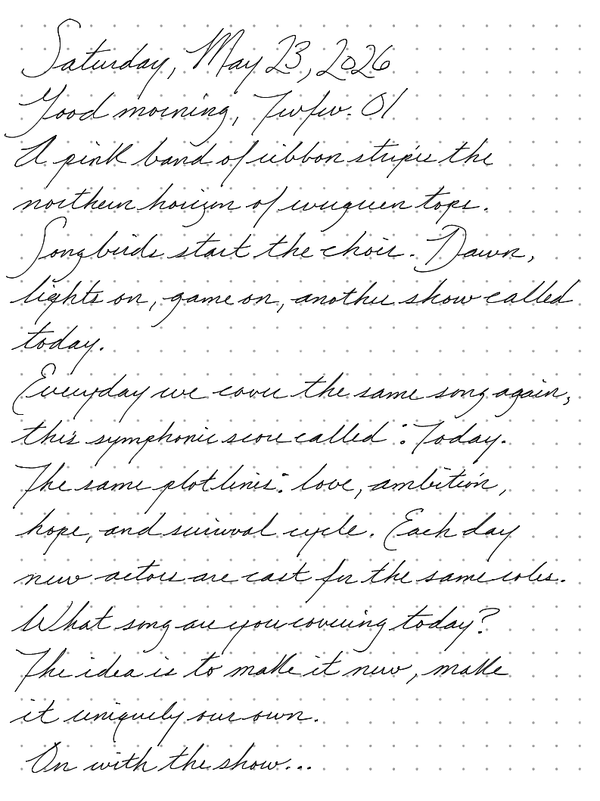 Saturday, May 23, 2026
Good morning, Twfw. 01
A pink band of ribbon stripes the
northern horizon of evergreen tops.
Songbirds start the choir. Dawn,
lights on, game on, another show called
today.
Everyday we cover the same song again,
this symphonic score called : Today.
The same plotlines: love, ambition,
hope, and survival cycle. Each day
new actors are cast for the same roles.
What song are you covering today?
The idea is to make it new, make
it uniquely our own.
On with the show...